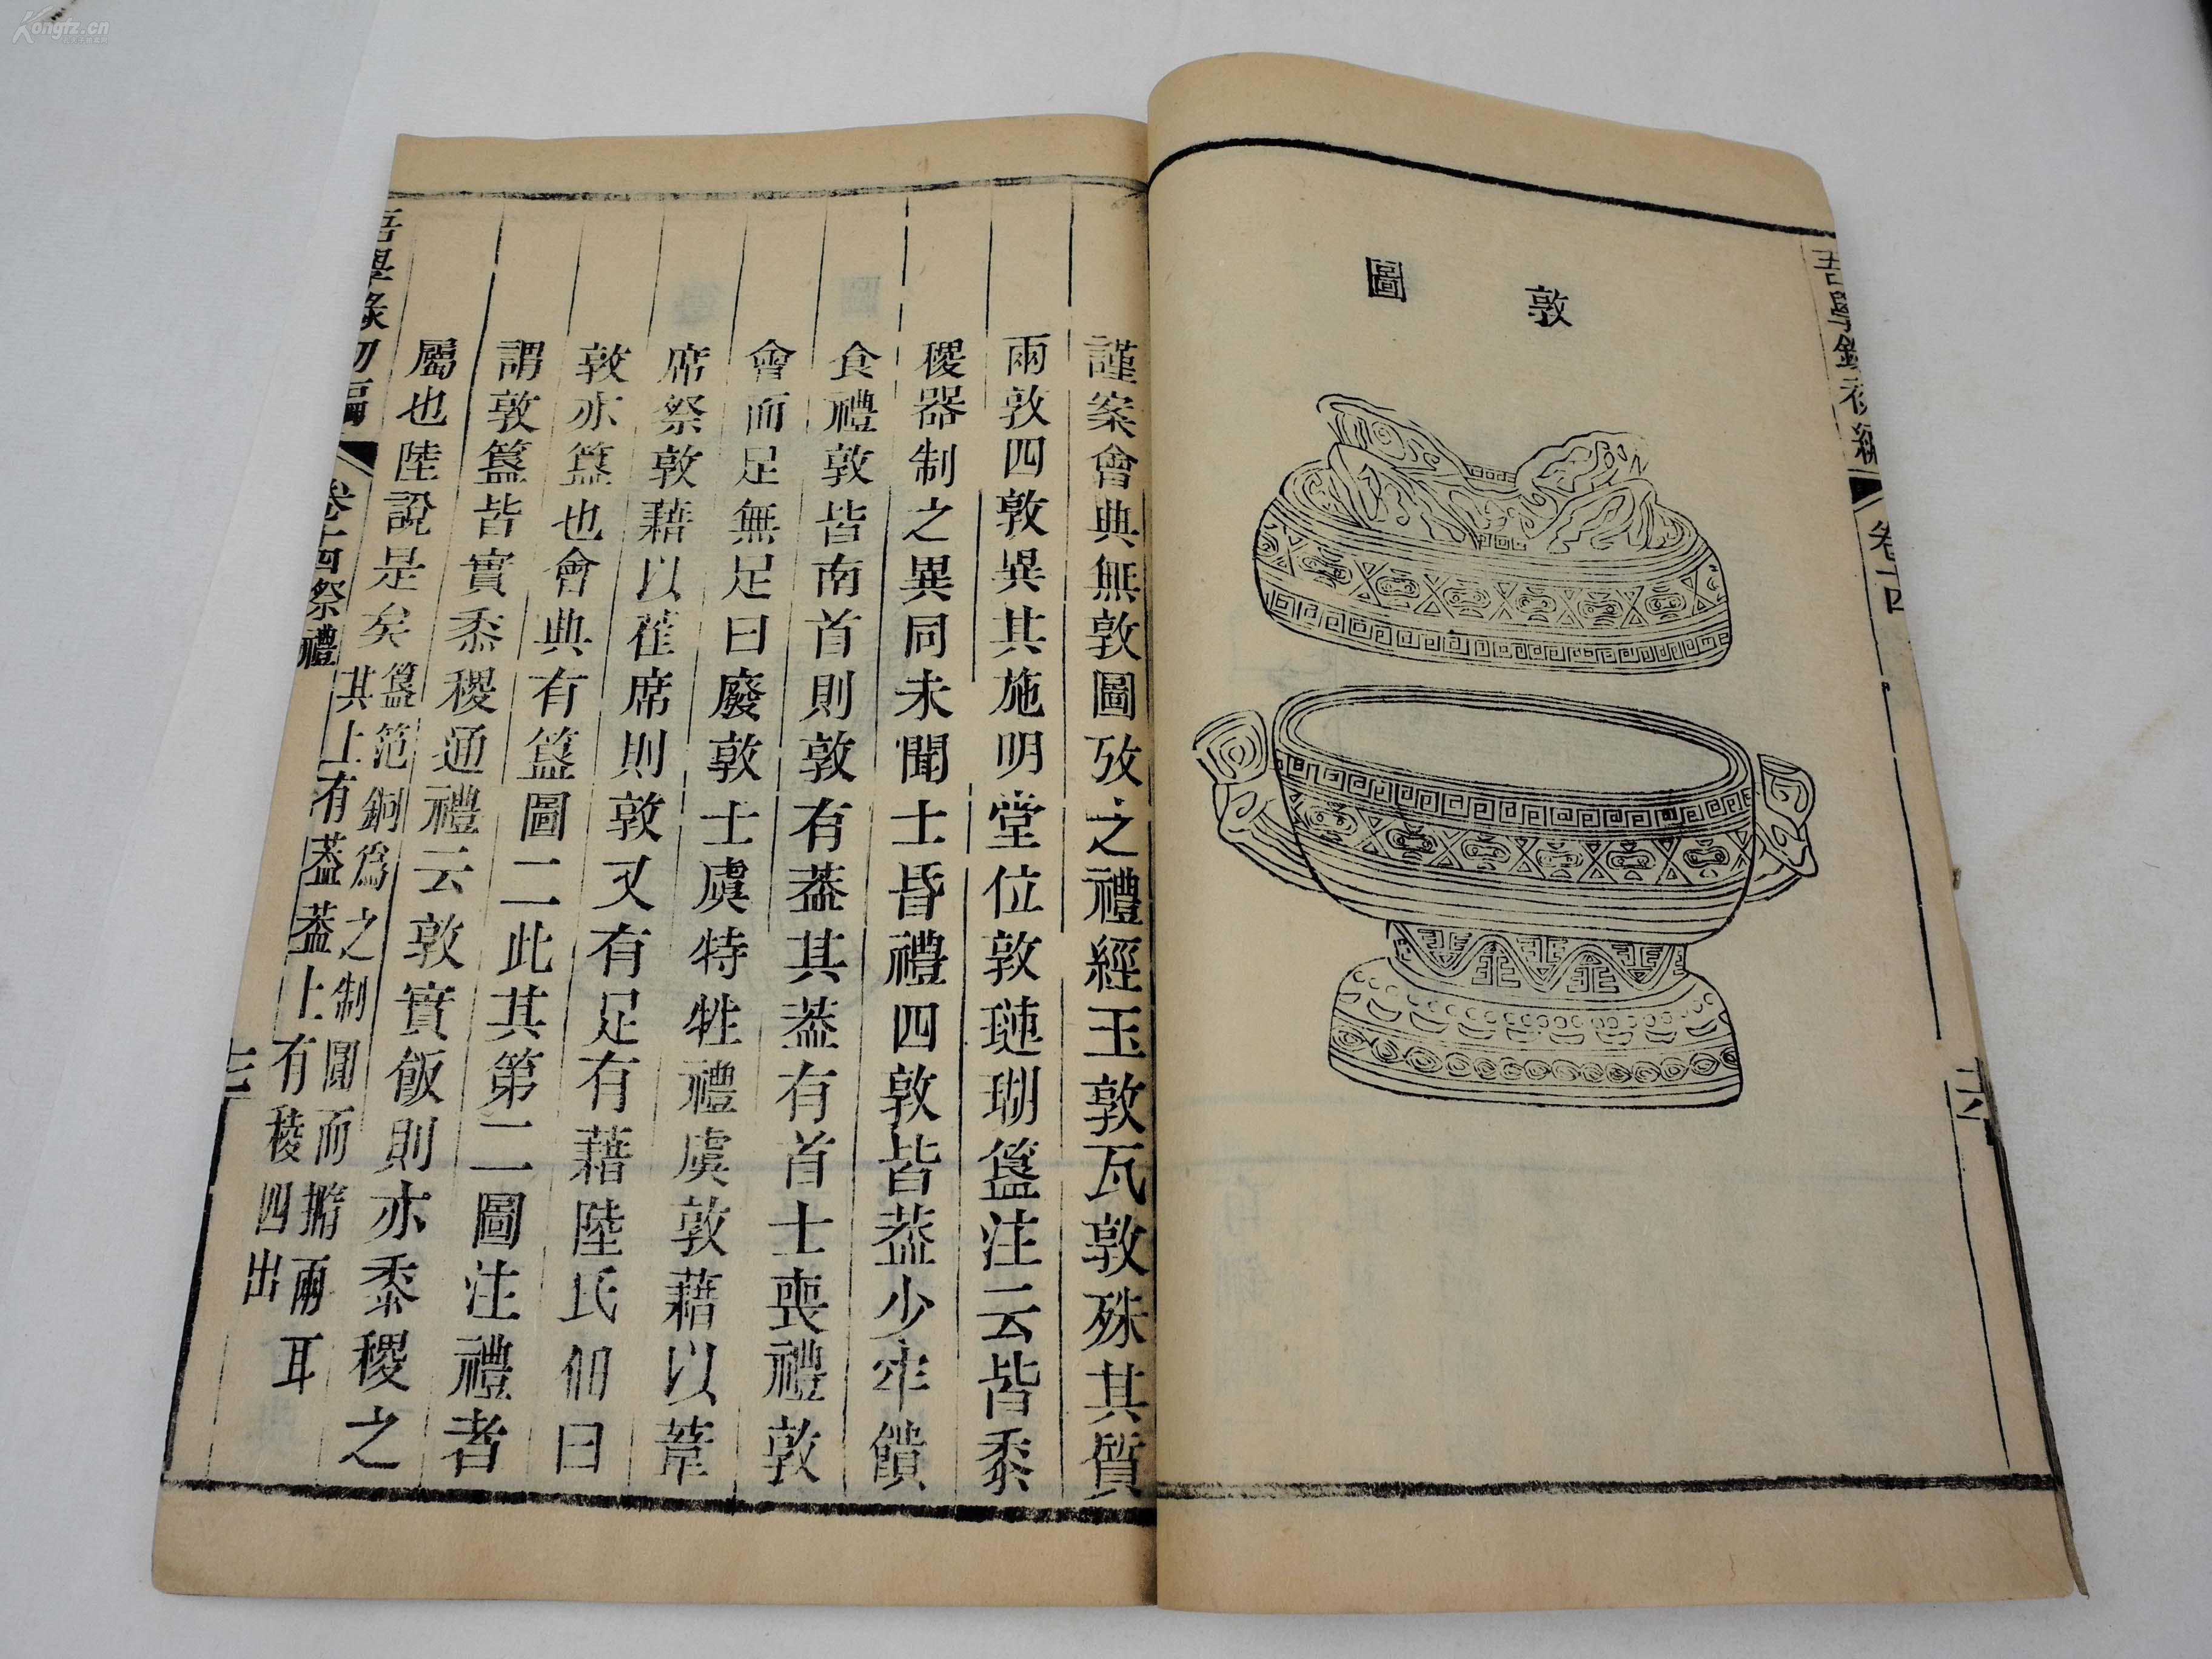 Kongfz.cn
吾學錄初編
卷十四
敦
圖
謹案會典無敦圖攷之禮經玉敦瓦敦殊其質
兩敦四敦異其施明堂位敦璉瑚簋注云皆黍
稷器制之異同未聞士昏禮四敦皆葢少牢饋
食禮敦皆南首則敦有葢其葢有首士喪禮敦
會而足無足曰廢敦士虞特牲禮虞敦藉以葦
席祭敦藉以萑席則敦又有足有藉陸氏佃曰
敦亦簋也會典有簋圖二此其第二圖注禮者
謂敦簋皆實黍稷通禮云敦實飯則亦黍稷之
屬也陸說是矣
簋范銅爲之制圜而橢兩耳
其上有葢葢上有稜四出
吾學錄初編
卷十四祭禮